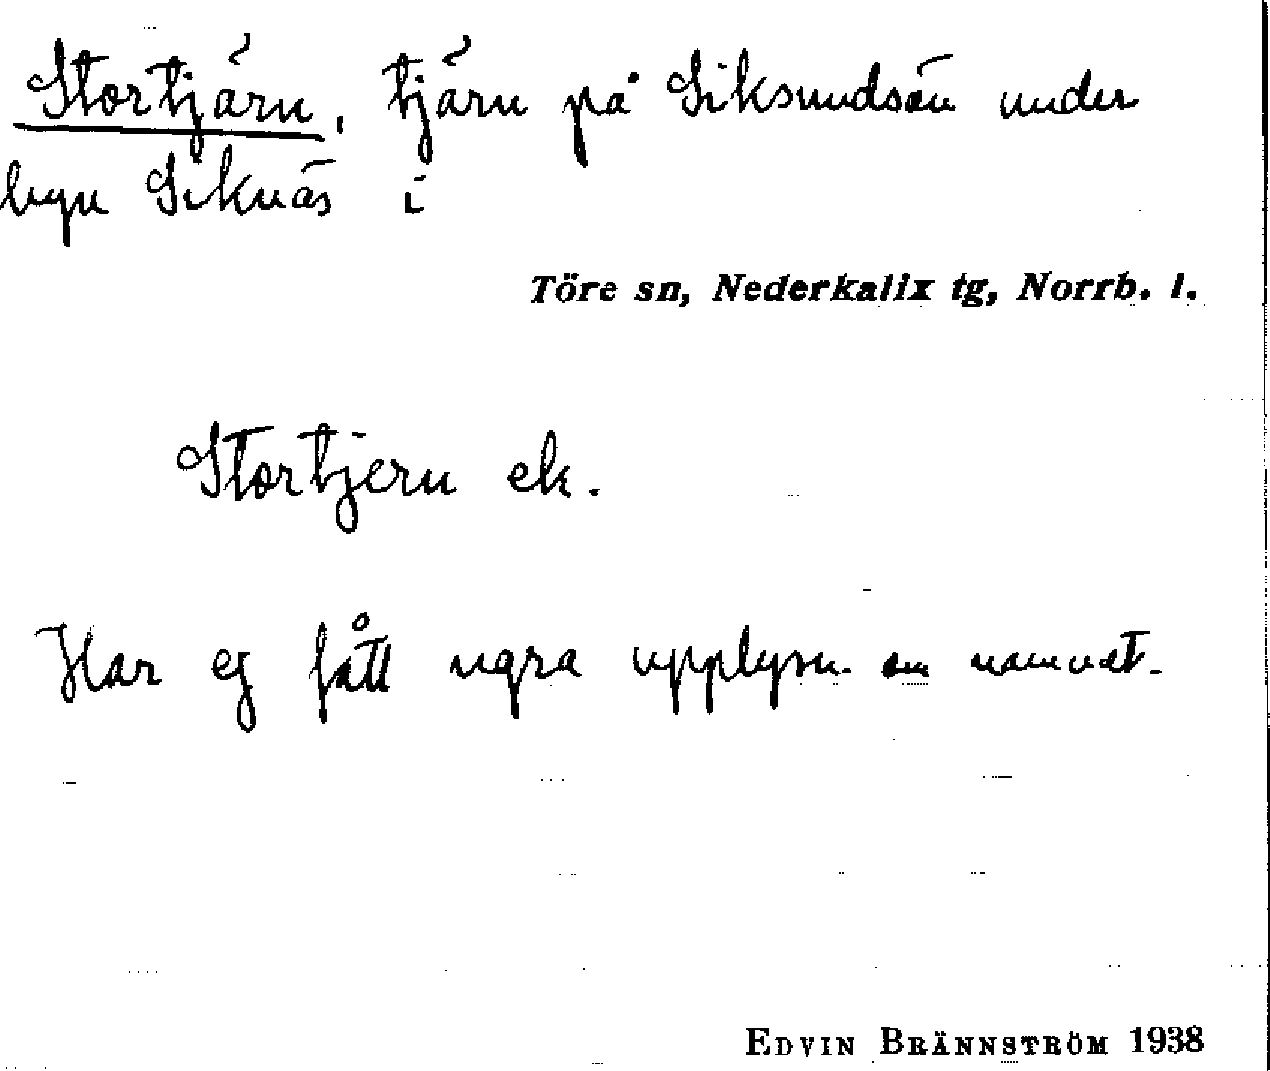 Stortjärn, tjärn på Siksundsön under
byn Siknäs i
Töre sn, Nederkalix tg, Norrb. l.
Stortjern ek.
Har ej fått ngra upplysn. om namnet.
EDVIN BRÄNNSTRÖM 1938